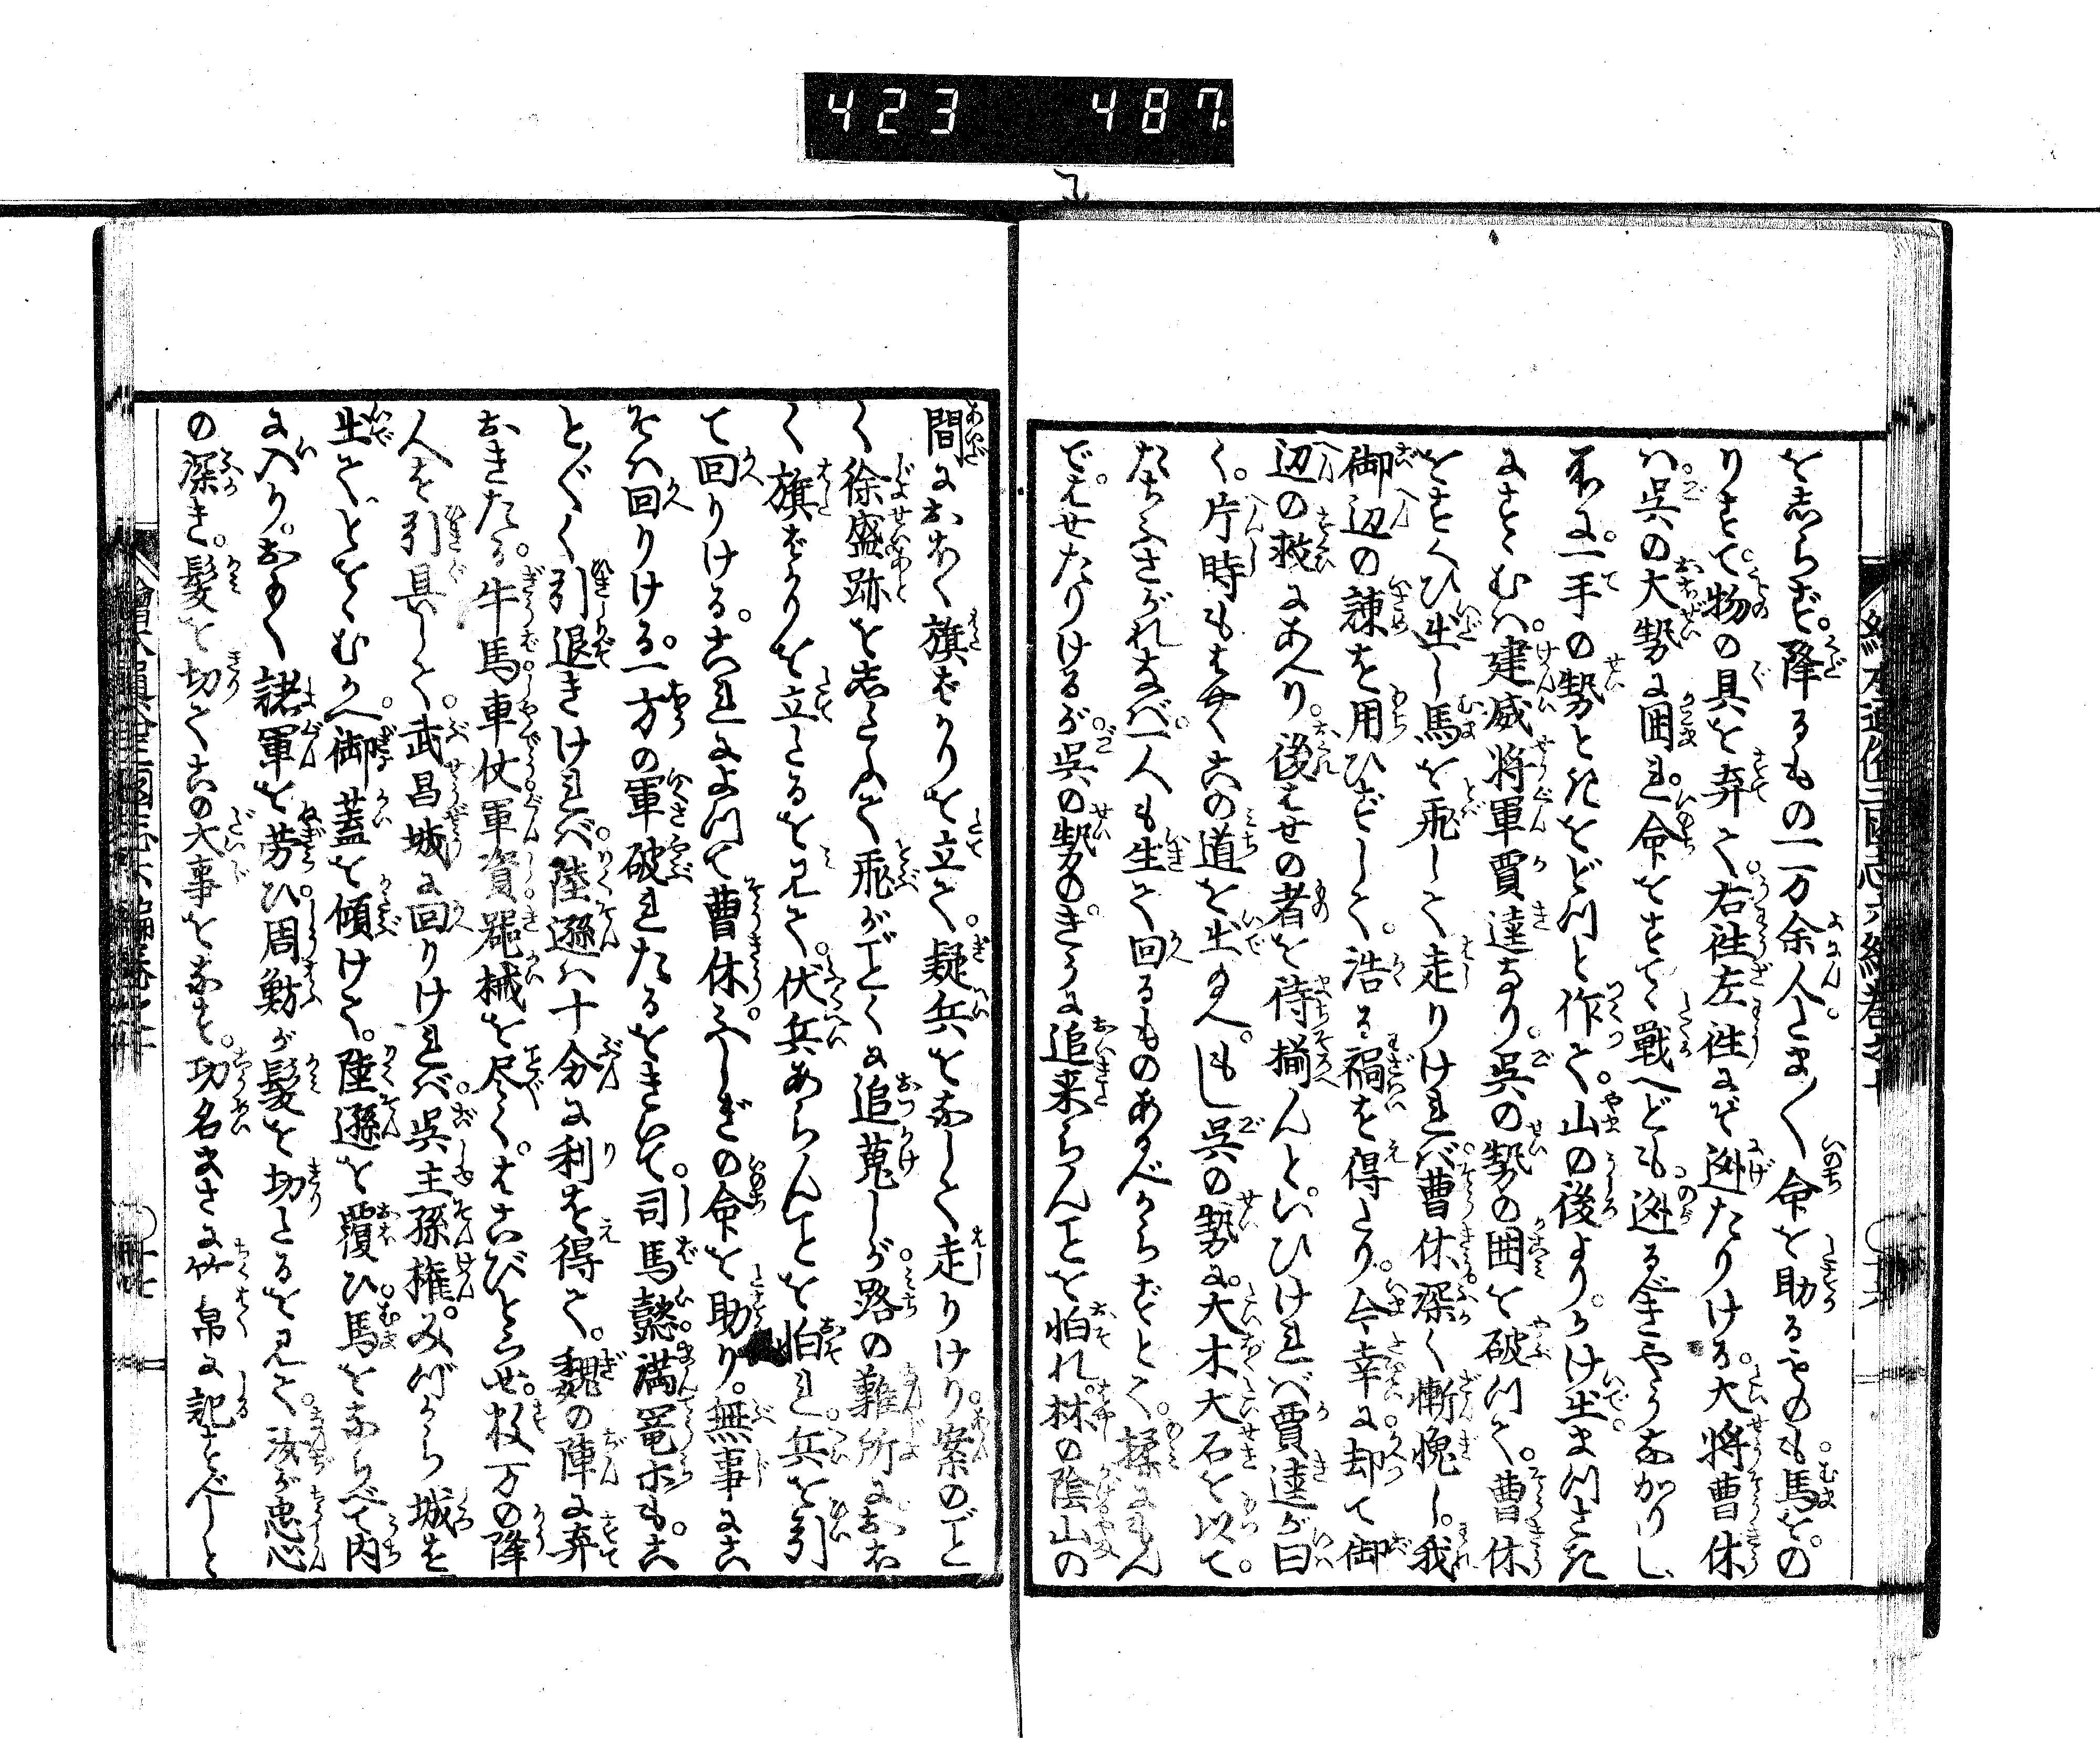 423 487
を志らず。降るもの一万余人たま〳〵命を助るものも馬を。の
りすて。物の具を弃て。右往左往にぞ迯たりける。大将曹休
ハ。呉の大勢に囲れ。命をすてゝ戦へども迯るべきやうなかりし
処に。一手の勢ときをどつと作て。山の後より。かけ出まつさき
にすゝむハ。建威将軍賈逵なり。呉の勢の囲を破つて。曹休
をすくひ出し馬を飛して走りければ。曹休深く慚愧し。我
御辺の諌を用ひずして。浩る禍を得たり。今幸に却て御
辺の救にあへり。後ばせの者を待揃んと。いひければ賈逵が曰
く。片時もはやく此の道を出給へ。もし呉の勢に。大木大石を以て。
たちふさがれなバ。一人も生て回るものあるべからずとて。揉にもん
で。はせたりけるが。呉の勢の。きうに追来らんことを怕れ。林の陰山の
間におほく旗ばかりを立て。疑兵をなして走りけり。案のごと
く徐盛跡を志たふて飛がごとくに追蒐しが。路の難所に。おほ
く旗ばかりを立たるを見て。伏兵あらんことを怕れ。兵を引
て回りける。これによつて曹休。ふしぎの命を助り。無事にこ
そハ回りける。一方の軍破れたるをきいて。司馬懿。満寵亦も。こ
とごとく引退きければ。陸遜ハ十分に利を得て。魏の陣に弃
おきたる。牛馬車仗軍資器械を尽く。はこびとらせ。数万の降
人を引具して。武昌城に回りければ。呉主孫権。みづから城を
出て。とをくむかへ。御蓋を傾けて。陸遜を覆ひ。馬をならべて内
に入り。おもく諸軍を労ひ。周魴が髪を切たるを見て。汝が忠心
の深き。髪を切て此の大事をなす。功名まさに竹帛に記すべしと